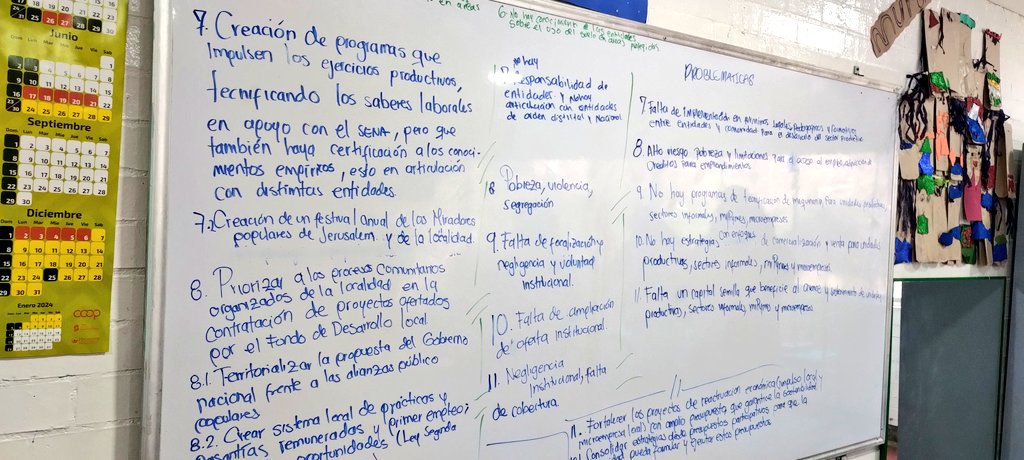 Junio
Septiembre
Dom Lun Mar Mie Jue Vie Sab
Diciembre
Enero 2024
coop
7. Creación de programas que
Impulsen los ejercicios productivos,
tecnificando los saberes laborales
en apoyo con el SENA, pero que
también haya certificación a los conoci-
mientos empíricos, esto en articulación
con distintas entidades
7.2 Creación de un festival anual de los Miradores
populares de Jerusalem y de la localidad.
8. Priorizar a los procesos comunitarios
organizados de la localidad en la
contratación de proyectos ofertados
por el Fondo de Desarrollo local.
8.1. Territorializar la propuesta del Gobierno
nacional frente a las alianzas público
populares
8.2. Crear sistema local de prácticas y
pasantías remuneradas y primer empleo;
oportunidades (Ley Segunda
en areas
6. No hay conocimiento de las entidades
sobre el uso del suelo en areas protegidas
no hay
responsabilidad de
entidades y no hay
articulación con entidades
de orden distrital y Nacional
8 Pobreza, violencia,
segregación
9. Falta de focalización y
negligencia y voluntad
institucional.
10. Falta de ampliación
de oferta institucional
11. Negligencia
Institucional, falta
de cobertura.
PROBLEMATICAS
7 Falta de implementación en
entre entidades y comunidad para el desarrollo del sector productivo
8. Alto riesgo pobreza y limitaciones para el acceso al empleo
creditos para emprendimientos
9. No hay programas de tecnificación de maquinaria, para unidades productivas,
sectores informales, mipymes, microempresas
10. No hay estrategias, con enfoques de comercialización y venta para unidades
productivas, sectores informales, mipymes y microempresas.
11. Falta un capital semilla que beneficie al avance y de unidades
productivas, sectores informales, mipymes y microempresas
11. Fortalecer los proyectos de reactivación económica (impulso local y
microempresa local) con amplio presupuesto, que garantice la sostenibilidad
Consolidar estrategias desde presupuestos participativos para que la
pueda formular y ejecutar estos presupuestos